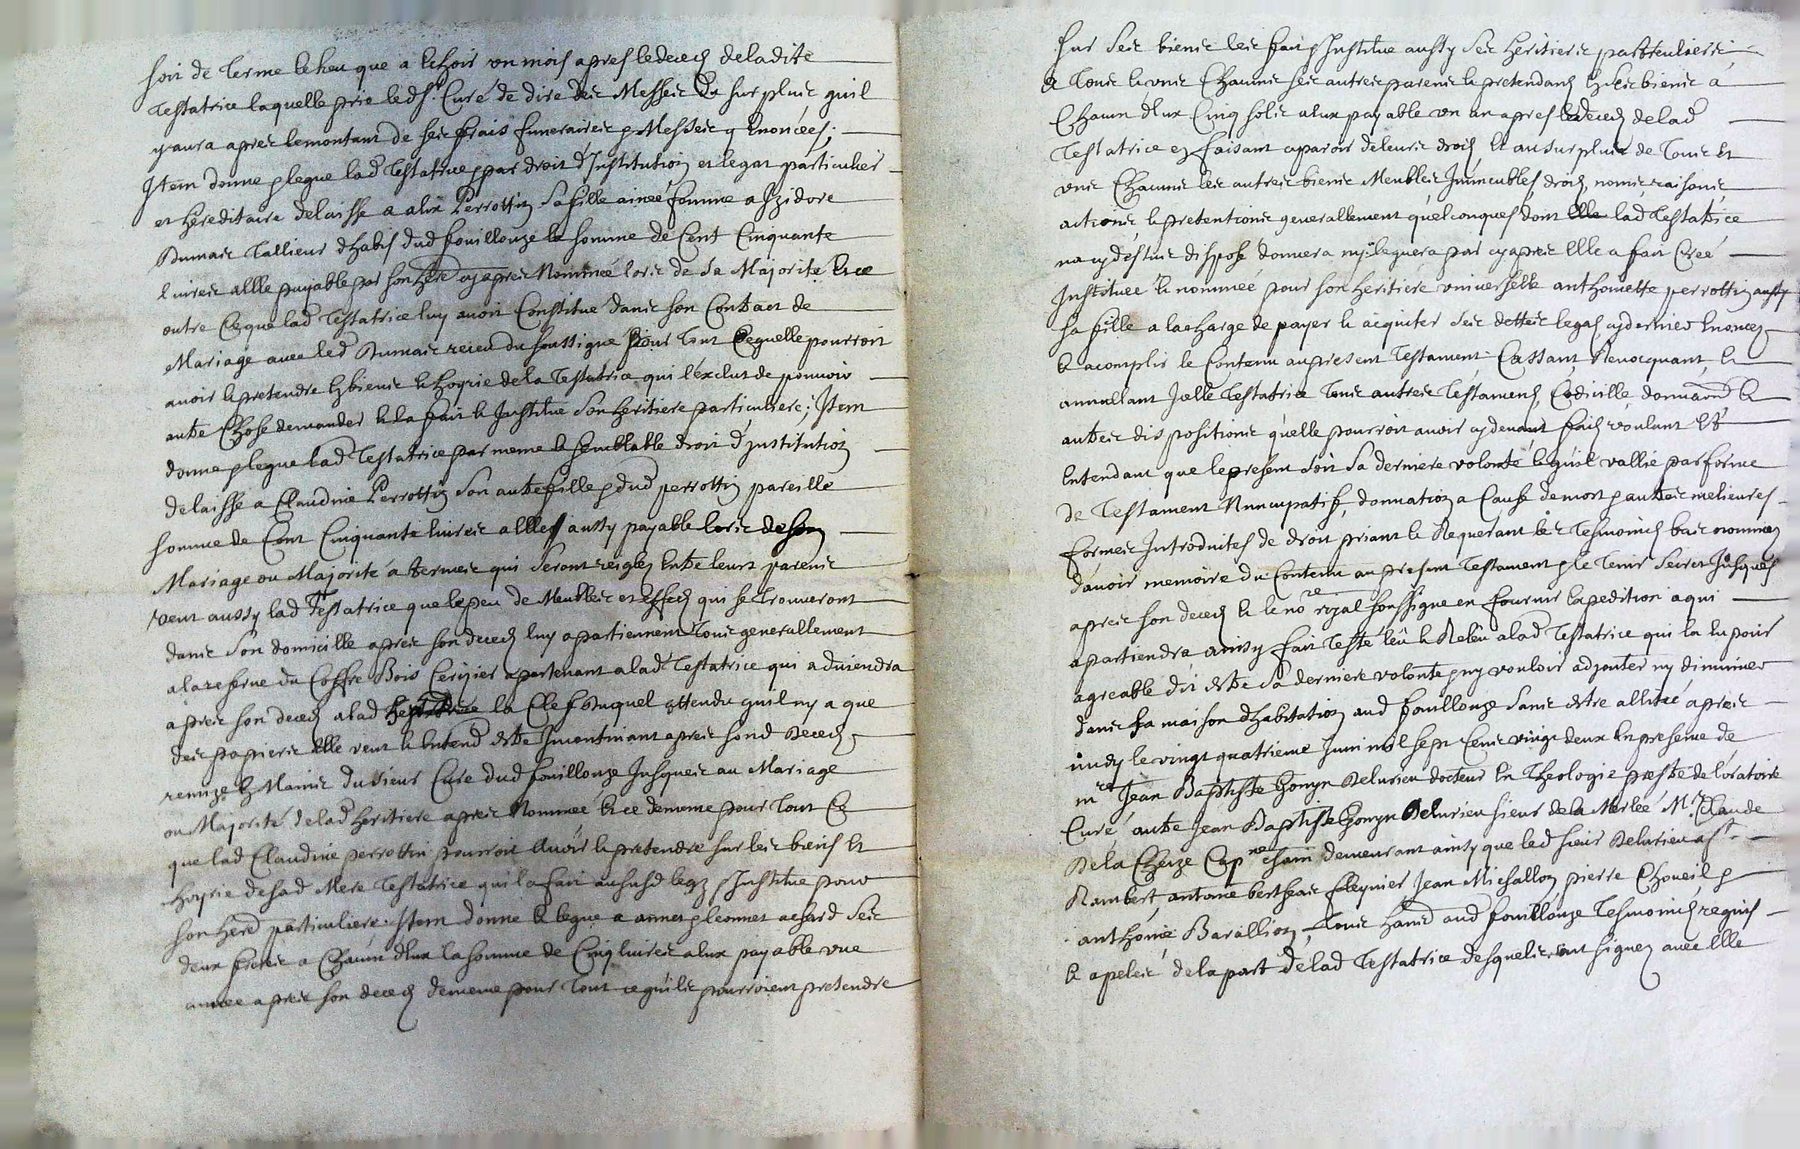 soit de terme le heu que a Echoir un mois apres le deces de ladite
Testatrice laquelle prie leds.r Curé de dire des Messes du surplus quil
y aura apres le montant de ses frais funeraires & Messes y Enoncées;
Item donne & legue lad Testatrice par droit d'Institution et legat particulier
et hereditaire delaisse a alix Perrottin sa fille ainée femme a Izidore
Dumas Tallieur dhabis dud fouillouze la somme de Cent Cinquante
livres a Elle payable par son here cy apres Nommée lors de sa Majorite Et ce
outre Ce que lad Testatrice luy avoit Constitué dans son Contract de
Mariage avec led Dumas receu du soussigné Pour Tout Ce quelle pourroit
avoir & pretendre Es biens & hoyrie de la Testatrice qui l'exclut de pouvoir
autre Chose demander & la fait & Institue son heritiere particuliere; Item
donne & legue lad Testatrice par meme & semblable droit d'Institution
delaisse a Claudine Perrottin son autre fille & dud perrottin pareille
somme de Cent Cinquante livres a Elle aussy payable lors de son
Mariage ou Majorité a termes qui seront reiglez Entre leurs parens
veut aussy lad Testatrice que le peu de Meubles et Effects qui se trouveront
dans son domicille apres son deces luy apartiennent tous generallement
a la reserve du Coffre Bois Cerizier apartenant a lad Testatrice qui adviendra
apres son deces a lad la Clef duquel attendu quil ny a que
des papiers Elle veut & Entend estre Incontinant apres sond Deces
remize Es Mains du sieur Curé dud fouillouze Jusques au Mariage
ou Majorité de lad heritiere apres Nommée Et ce de meme pour Tout Ce
que lad Claudine perrottin pourroit Avoir & pretendre sur les biens Et
hoyrie de sad Mere Testatrice qui la fait au susd legz & Institue pour
son here particuliere. Item donne & legue a & leonnet achard ses
deux freres a Chacun d'Eux la somme de Cinq livres a Eux payable une
année apres son deces de meme pour Tout ce qu'ils pourroient pretendre
sur ses biens les fait & Institue aussy ses heritiers particuliers
& Tous & uns Chacuns ses autres parens & pretendans Es ses biens a
Chacun d'Eux Cinq sols a Eux payable un an apres le deces de lad
Testatrice En faisant aparoir de leurs droits & au surplus de Tous Et
uns Chacuns les autres biens Meubles Immeubles droits, noms raisons
actions & pretentions generallement quelconques dont lad Testatrice
na cy dessus disposé donnera ny leguera par cy apres Elle a fait Créé
Instituée & nommée pour son heritiere universelle anthoinette perrottin aussy
sa fille a la charge de payer & acquiter ses dettes legats cy dernier Enoncez
& acomplir le Contenu au present Testament Cassant, Revocquant, &
annullant Icelle Testatrice Tous autres Testamens, Codicille, donnaõn &
autres dispositions qu'elle pourroit avoir cy devant faits voulant Et
Entendant que le present soit sa derniere volonté & quil vallie par forme
de Testament Nuncupatif, donnation a Cause de mort & autres melieures
formes Introduites de droit priant & Requerant les Tesmoins bas nommez
d'avoir memoire du Contenu au present Testament & le Tenir secret Jusques
apres son deces & le no.re royal soussigne en fournir Expedition a qui
apartiendra ainsy fait Testé leü & Releü a lad Testatrice qui la Eu pour
agreable dit estre sa derniere volonté & ny vouloir adjouter ny diminuer
dans sa maison dhabitation aud fouillouze sans estre allitée apres
midy le vingt quatrieme Juin mil sept Cens vingt deux En presence de
m.re Jean Baptiste Gonyn Delurieu docteur En Theologie prestre de l'oratoire
Curé autre Jean Baptiste Gonyn Delurieu sieur de la Merlée M.r Claude
De la Cheize Cap.ne chain demeurant ainsy que led sieur Delurieu a S.t
Rambert, antoine Jean Michallon pierre &
anthoine Barallion, Tous hans aud fouillouze Tesmoins requis
& apelés de la part de lad Testatrice desquels ont signez avec Elle